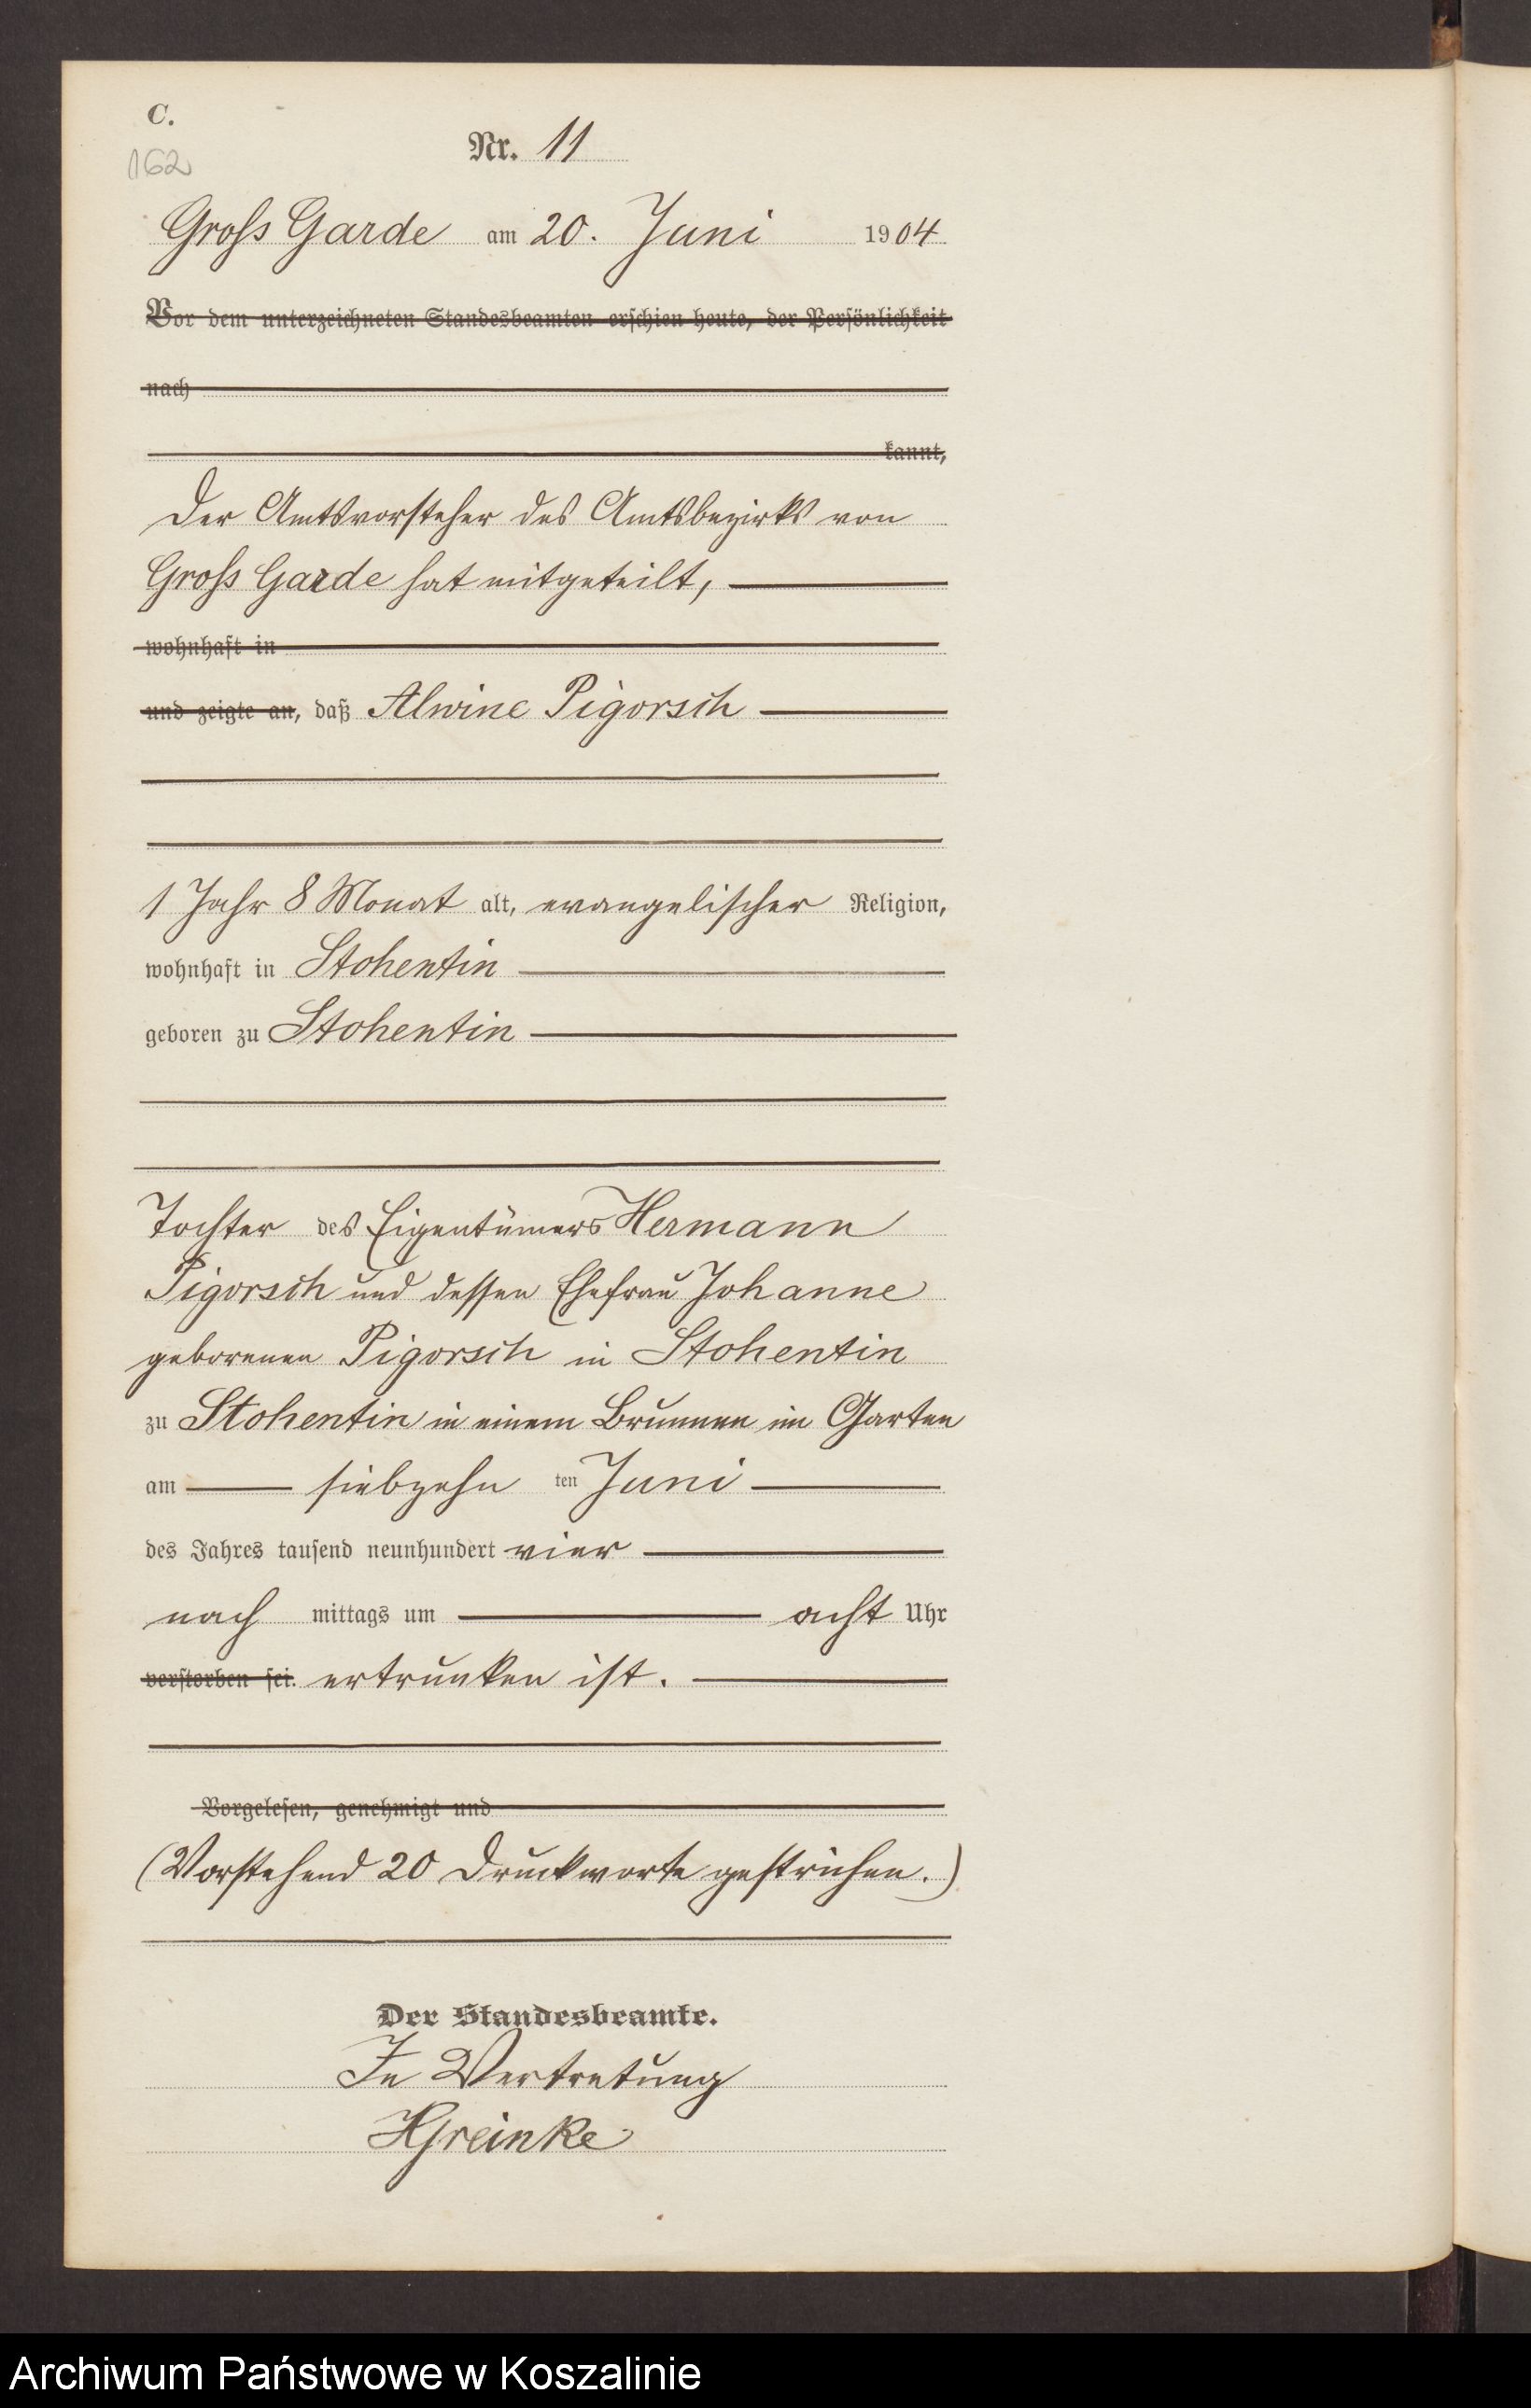 C.
162
Nr. 11
Gross Garde am 20. Juni 1904
Vor dem unterzeichneten Standesbeamten erschien heute, der Persönlichkeit
nach
kannt,
Der Amtsvorsteher des Amtsbezirks von
Gross Garde hat mitgeteilt,
wohnhaft in
und zeigte an, daß Alwine Pigorsch
1 Jahr 8 Monat alt, evangelischer Religion,
wohnhaft in Stohentin
geboren zu Stohentin
Tochter des Eigentümers Hermann
Pigorsch und dessen Ehefrau Johanne
geborenen Pigorsch in Stohentin
zu Stohentin in einem Brunnen im Garten
am siebzehn ten Juni
des Jahres tausend neunhundert vier
nach mittags um acht Uhr
verstorben sei. ertrunken ist.
Vorgelesen, genehmigt und
(Vorstehend 20 Druckworte gestrichen.)
Der Standesbeamte.
In Vertretung
HGreinke
Archiwum Państwowe w Koszalinie